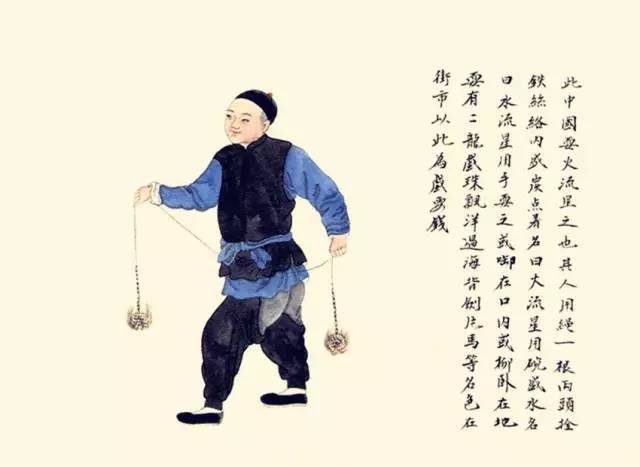 此中國耍火流星之也其人用繩一根兩頭拴
鉄絲絡內盛炭点着名曰火流星用碗盛水名
曰水流星用手耍之或啣在口內或仰卧在地
耍有二龍戲珠觀洋過海背劍片馬等名色在
街市以此為戲耍錢